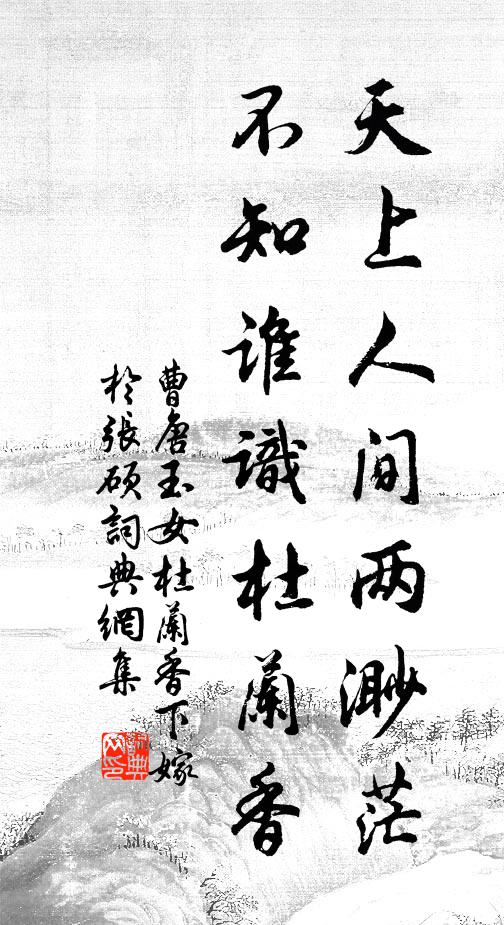 天上人间两渺茫
不知谁識杜蘭香
曹唐玉女杜蘭香下嫁
於張碩詞典網集
詞典